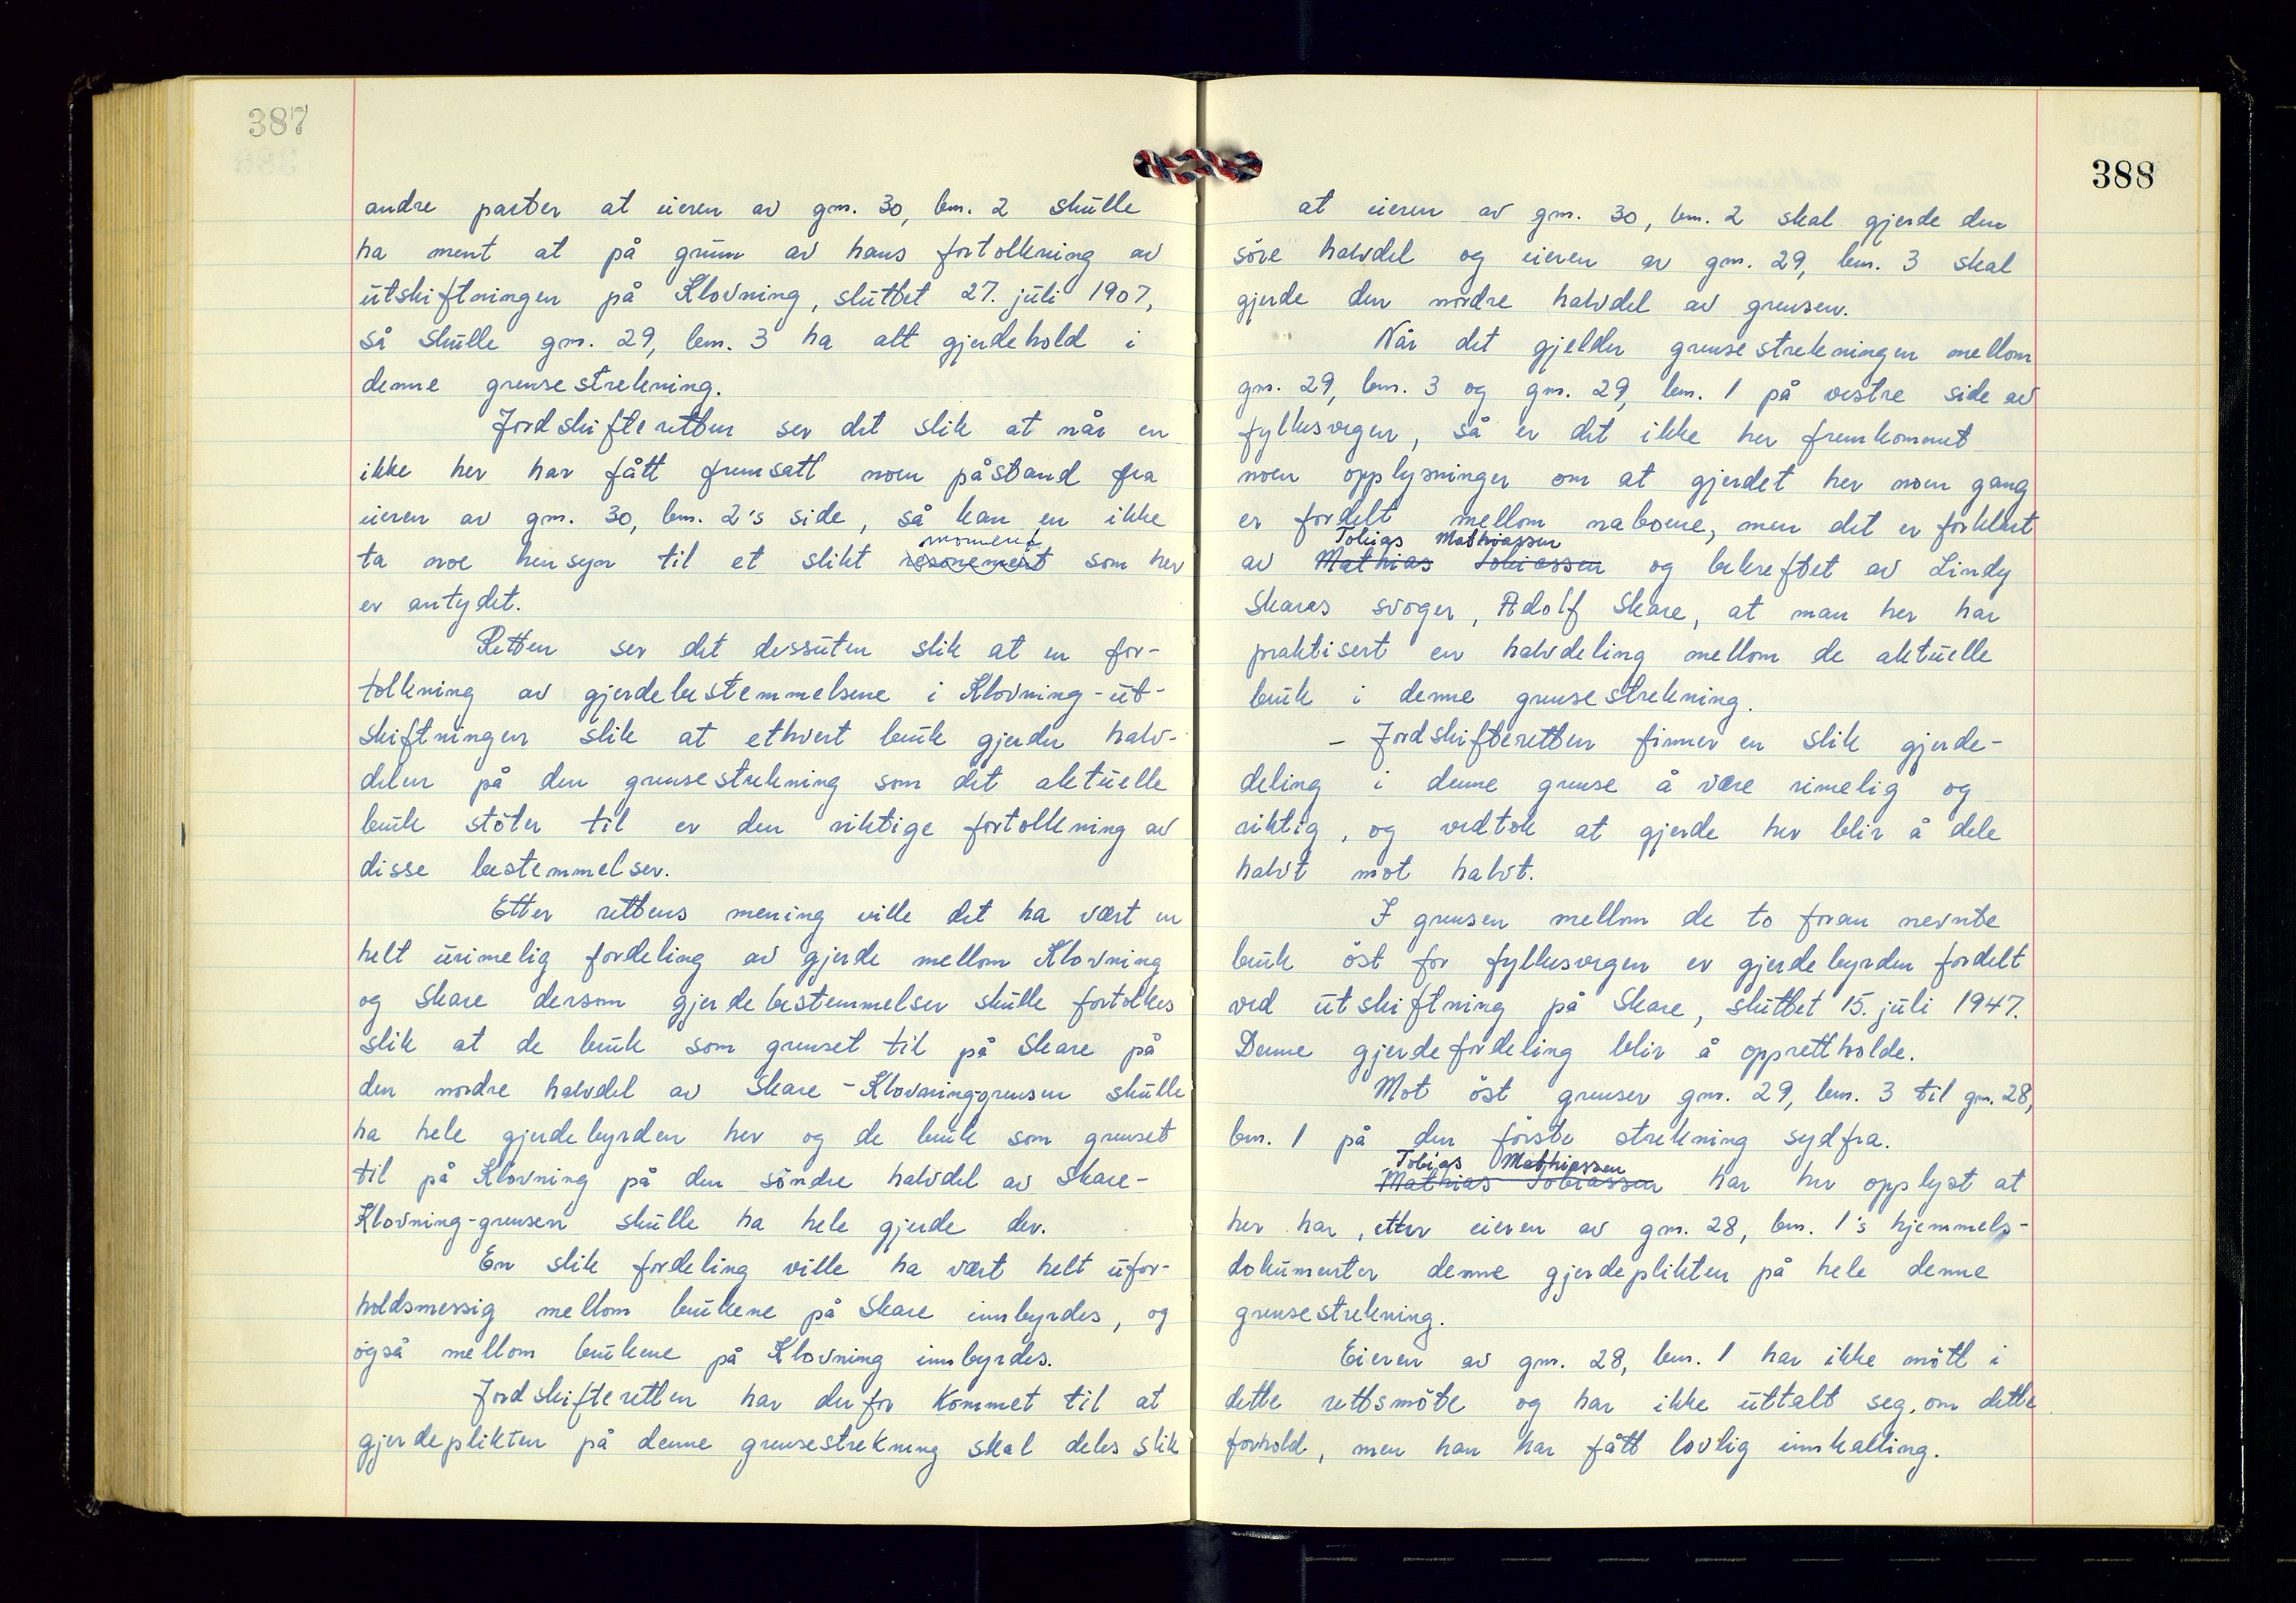 387
andre parter at eieren av gnr. 30, bnr. 2 skulle
ha ment at på grunn av hans fortolkning av
utskiftningen på Klovning, sluttet 27. juli 1907,
så skulle gnr. 29, bnr. 3 ha alt gjerdehold i
denne grensestrekning.
Jordskifteretten ser det slik at når en
ikke her har fått fremsatt noen påstand fra
eieren av gnr. 30, bnr. 2's side, så kan en ikke
moment
ta noe hensyn til et slikt resonement som her
er antydet.
Retten ser det dessuten slik at en for-
tolkning av gjerdebestemmelsene i Klovning-ut-
skiftningen slik at ethvert bruk gjerder halv-
delen på den grensestrekning som det aktuelle
bruk støter til er den riktige fortolkning av
disse bestemmelser.
Etter rettens mening ville det ha vært en
helt urimelig fordeling av gjerde mellom Klovning
og Skare dersom gjerdebestemmelser skulle fortolkes
slik at de bruk som grenset til på Skare på
den nordre halvdel av Skare-Klovning-grensen skulle
ha hele gjerdebyrden her og de bruk som grenset
til på Klovning på den søndre halvdel av Skare-
Klovning-grensen skulle ha hele gjerde der.
En slik fordeling ville ha vært helt ufor-
holdsmessig mellom brukene på Skare innbyrdes, og
også mellom brukene på Klovning innbyrdes.
Jordskifteretten har derfor kommet til at
gjerdeplikten på denne grensestrekning skal deles slik
388
at eieren av gnr. 30, bnr. 2 skal gjerde den
söre halvdel og eieren av gnr. 29, bnr. 3 skal
gjerde den nordre halvdel av grensen.
Når det gjelder grensestrekningen mellom
gnr. 29, bnr. 3 og gnr. 29, bnr. 1 på vestre side av
fylkesvegen, så er det ikke her fremkommet
noen opplysninger om at gjerdet her noen gang
er fordelt mellom naboene, men det er forklart
Tobias Mathiassen
av Mathias Tobiassen og bekreftet av Lindy
Skares svoger, Adolf Skare, at man her har
praktisert en halvdeling mellom de aktuelle
bruk i denne grensestrekning.
- Jordskifteretten finner en slik gjerde-
deling i denne grense å være rimelig og
riktig, og vedtok at gjerde her blir å dele
halvt mot halvt.
I grensen mellom de to foran nevnte
bruk öst for fylkesvegen er gjerdebyrden fordelt
ved utskiftning på Skare, sluttet 15. juli 1947.
Denne gjerdefordeling blir å opprettholde.
Mot öst grenser gnr. 29, bnr. 3 til gnr. 28,
bnr. 1 på den förste strekning sydfra.
Tobias Mathiassen
Mathias Tobiassen har her opplyst at
her har, etter eieren av gnr. 28, bnr. 1's hjemmels-
dokumenter denne gjerdeplikten på hele denne
grensestrekning.
Eieren av gnr. 28, bnr. 1 har ikke mött i
dette rettsmöte og har ikke uttalt seg om dette
forhold, men han har fått lovlig innkalling.